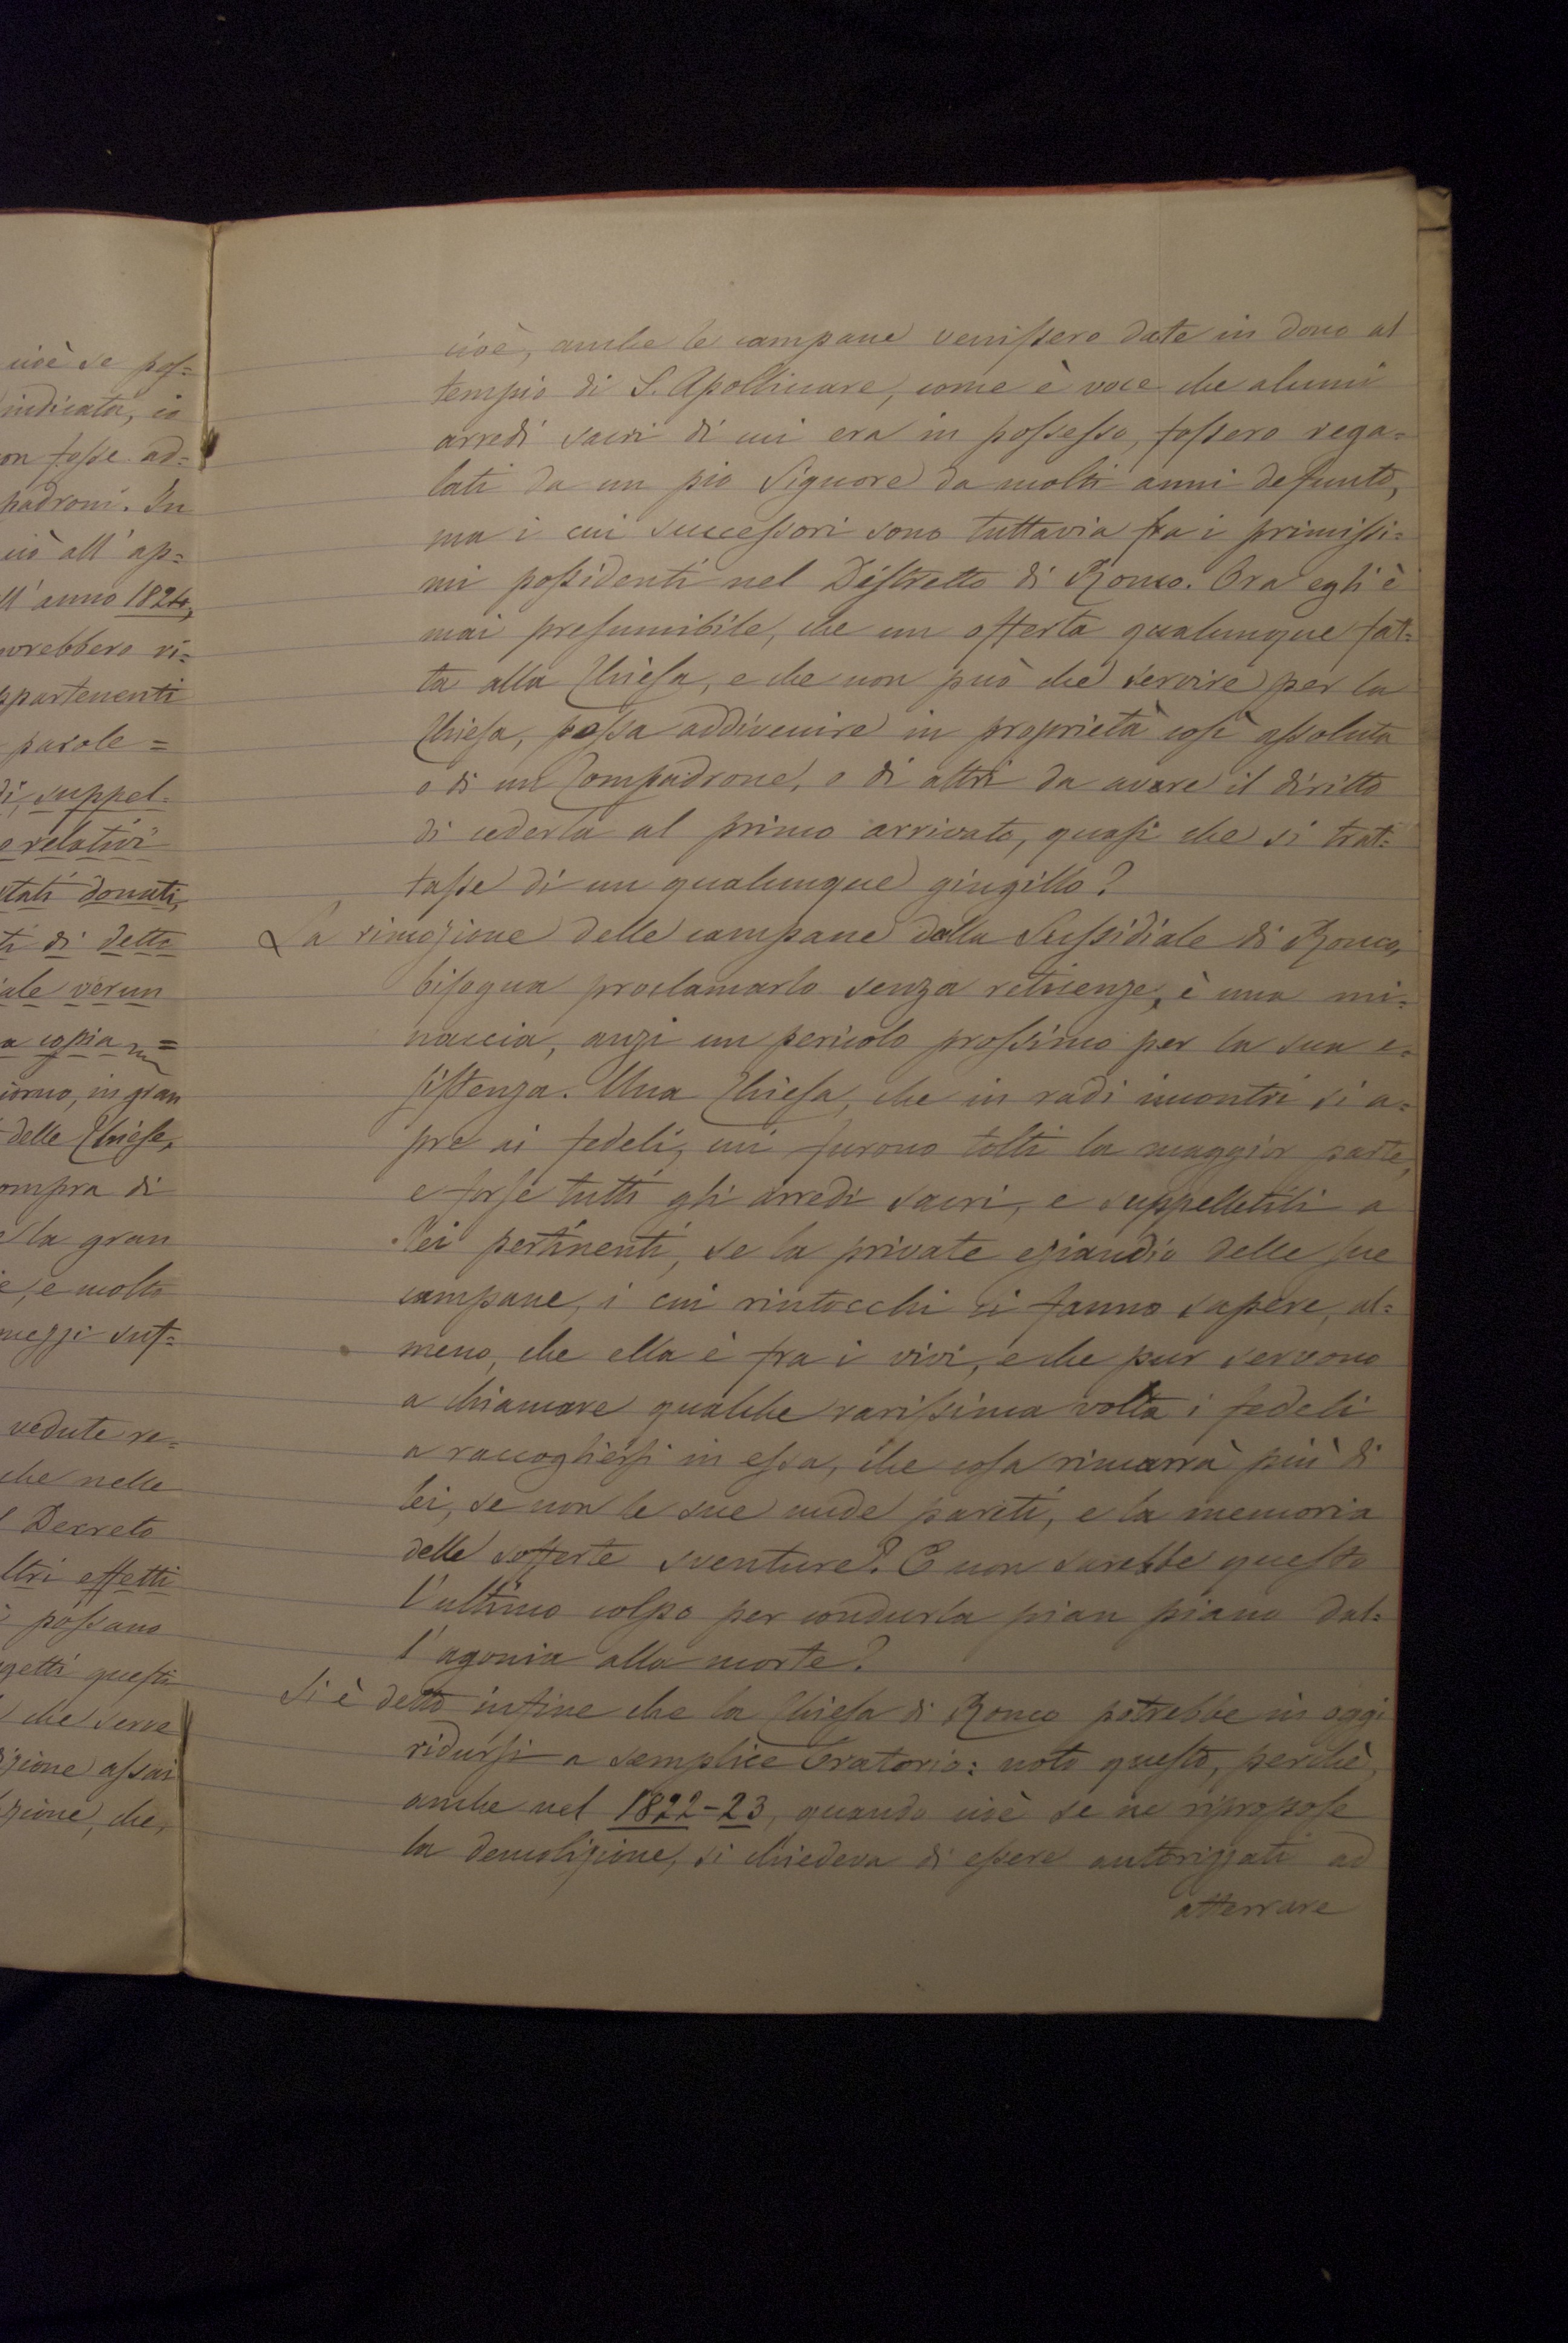 cioè se pos=
indicata, io
on fosse ad=
padroni. In
ciò all'ap=
ll'anno 1824,
ovrebbero ri=
ppartenenti
parole =
di, suppel=
o relativi
stati donati,
ti di detto
iale verun
a copia =
iorno, in gran
delle Chiese,
ompra di
la gran
e, e molto
mezzi suf=
vedute re=
che nelle
l Decreto
ltri effetti
possano
getti questi
che serve
izione assai
zione, che,
cioè, anche le campane venissero date in dono al
tempio di S. Apollinare, come è voce che alcuni
arredi sacri di cui era in possesso, fossero rega=
lati da un pio Signore da molti anni defunto,
ma i cui successori sono tuttavia fra i primissi=
mi possidenti nel Distretto di Ronco. Ora egli è
mai presumibile, che un offerta qualunque fat=
ta alla Chiesa, e che non può che servire per la
Chiesa, possa addivenire in proprietà così assoluta
o di un Compadrone, o di altri da avere il diritto
di cederla al primo arrivato, quasi che si trat=
tasse di un qualunque gingillo?
La rimozione delle campane dalla Sussidiale di Ronco,
bisogna proclamarlo senza reticenze, è una mi=
naccia, anzi un pericolo prossimo per la sua e=
sistenza. Una Chiesa, che in radi incontri si a=
pre ai fedeli, cui furono tolti la maggior parte,
e forse tutti gli arredi sacri, e suppelletili a
lei pertinenti, se la private eziandio delle sue
campane, i cui rintocchi ci fanno sapere, al=
meno, che ella è fra i vivi, e che pur servono
a chiamare qualche rarissima volta i fedeli
a raccogliersi in essa, che cosa rimarrà più di
lei, se non le sue nude pareti, e la memoria
delle sofferte sventure? E non sarebbe questo
l'ultimo colpo per condurla pian piano dal=
l'agonia alla morte?
Si è detto infine che la Chiesa di Ronco potrebbe in oggi
ridursi a semplice Oratorio: noto questo, perchè,
anche nel 1822-23, quando cioè se ne ripropose
la demolizione, si chiedeva di essere autorizzati ad
atterrare